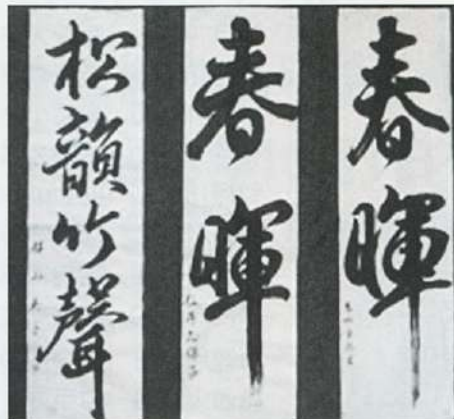 春暉
春暉
松韻竹聲